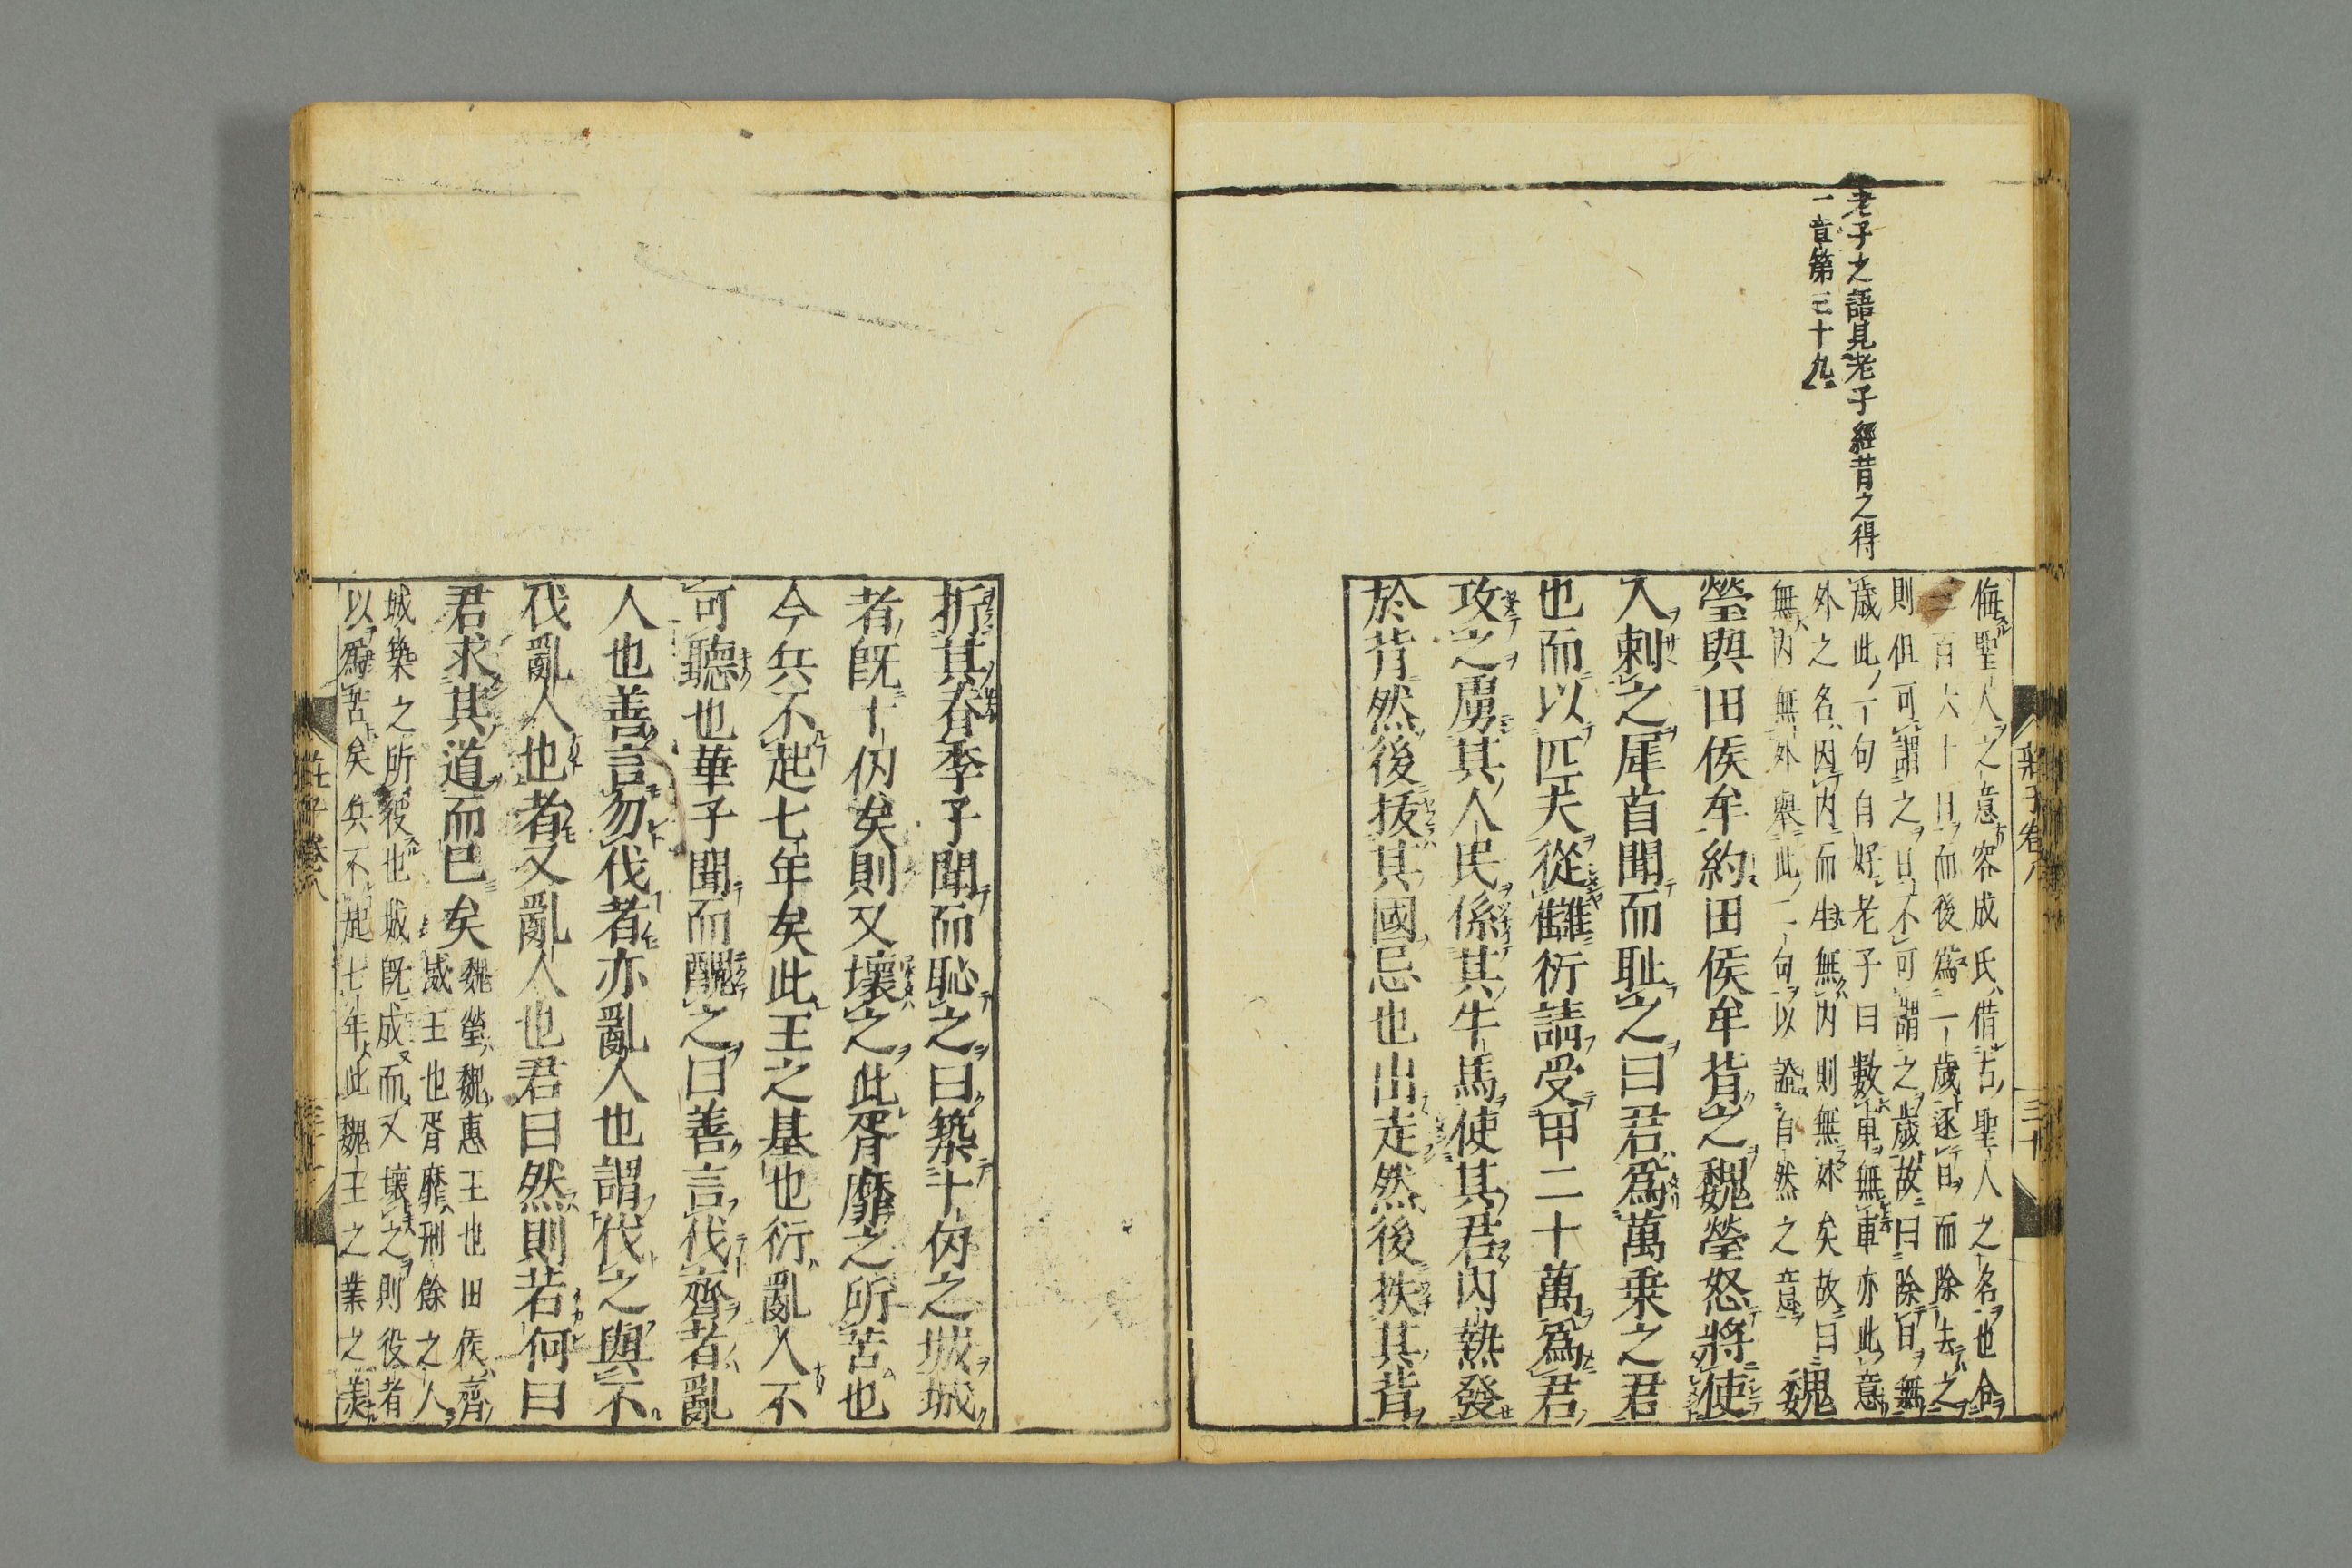 老子之語見老子經昔之得
一章第三十九
侮聖人之意容成氏借古聖人之名也合
三百六十日而後爲一歲逐日而除去之
則但可謂之日不可謂之歲故曰除日無
歲此一句自好老子曰數車無車亦此意
外之名因内而生無内則無外矣故曰
無内無外舉此二句以證自然之意 魏
瑩與田侯牟約田侯牟背之魏瑩怒將使
人刺之犀首聞而耻之曰君爲萬乘之君
也而以匹夫從讎衍請受甲二十萬爲君
攻之虜其人民係其牛馬使其君内熱發
於背然後拔其國忌也出走然後抶其背
莊子卷八 三十
折其脊季子聞而恥之曰築十仞之城城
者既十仞矣則又壞之此胥靡之所苦也
今兵不起七年矣此王之基也衍亂人不
可聽也華子聞而醜之曰善言伐齊者亂
人也善言勿伐者亦亂人也謂伐之與不
伐亂人也者又亂人也君曰然則若何曰
君求其道而已矣 魏瑩魏惠王也田侯齊
威王也胥靡刑餘之人
城築之所役也城既成而又壞之則役者
以爲苦矣兵不起七年此魏王之業之美
莊子卷八